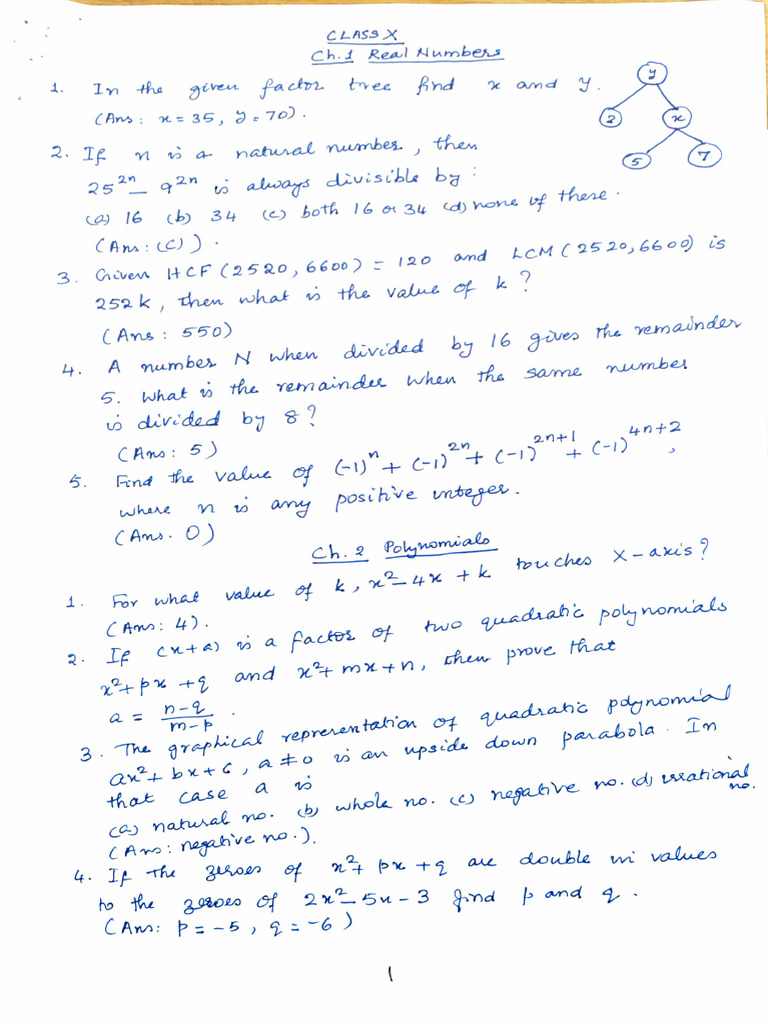 CLASS X
Ch.1 Real Numbers
1. In the given factor tree find x and y.
(Ans: x = 35, y = 70).
y
2
x
5
7
2. If n is a natural number, then
25²ⁿ − 9²ⁿ is always divisible by:
(a) 16 (b) 34 (c) both 16 or 34 (d) none of these.
(Ans: (C)).
3. Given HCF (2520, 6600) = 120 and LCM (2520, 6600) is
252k, then what is the value of k?
(Ans: 550)
4. A number N when divided by 16 gives the remainder
5. What is the remainder when the same number
is divided by 8?
(Ans: 5)
5. Find the value of (-1)ⁿ + (-1)²ⁿ + (-1)²ⁿ⁺¹ + (-1)⁴ⁿ⁺²,
where n is any positive integer.
(Ans. 0)
Ch. 2 Polynomials
1. For what value of k, x² − 4x + k touches X-axis?
(Ans: 4).
2. If (x+a) is a factor of two quadratic polynomials
x² + px + q and x² + mx + n, then prove that
a = (n-q)/(m-p).
3. The graphical reprerentation of quadratic polynomial
ax² + bx + c, a ≠ 0 is an upside down parabola. In
that case a is
(a) natural no. (b) whole no. (c) negative no. (d) irrational no.
(Ans: negative no.).
4. If the zeroes of x² + px + q are double in values
to the zeroes of 2x² − 5x − 3 find p and q.
(Ans: p = −5, q = −6)
1